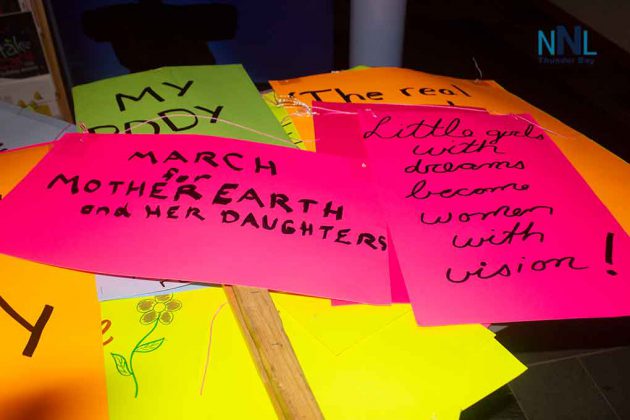 NNL
Thunder Bay
MY
BODY
"The real
MARCH
for
MOTHER EARTH
and HER DAUGHTERS
Little girls
with
dreams
become
women
with
vision!
y